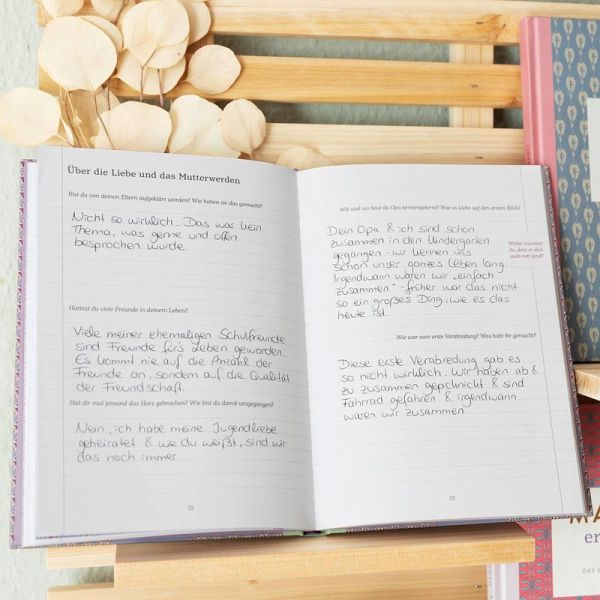 Über die Liebe und das Mutterwerden
Bist du von deinen Eltern aufgeklärt worden? Wie haben sie das gemacht?
Nicht so wirklich. Das war kein
Thema, was gerne und offen
besprochen wurde.
Hattest du viele Freunde in deinem Leben?
Viele meiner ehemaligen Schulfreunde
sind Freunde für's Leben geworden.
Es kommt nie auf die Anzahl der
Freunde an, sondern auf die Qualität
der Freundschaft.
Hat dir mal jemand das Herz gebrochen? Wie bist du damit umgegangen?
Nein, ich habe meine Jugendliebe
geheiratet & wie du weißt, sind wir
das noch immer.
72
Wie und wo hast du Opa kennengelernt? War es Liebe auf den ersten Blick?
Dein Opa & ich sind schon
zusammen in den Kindergarten
gegangen - wir kennen uns
schon unser ganzes Leben lang.
Irgendwann waren wir „einfach
zusammen" - früher war das nicht
so ein großes Ding, wie es das
heute ist.
Woher wusstest
du, dass er dich
auch nett fand?
Wie war eure erste Verabredung? Was habt ihr gemacht?
Diese erste Verabredung gab es
so nicht wirklich. Wir haben ab &
zu zusammen gepicknickt & sind
Fahrrad gefahren & irgendwann
waren wir zusammen.
73
MA
er
DAS E